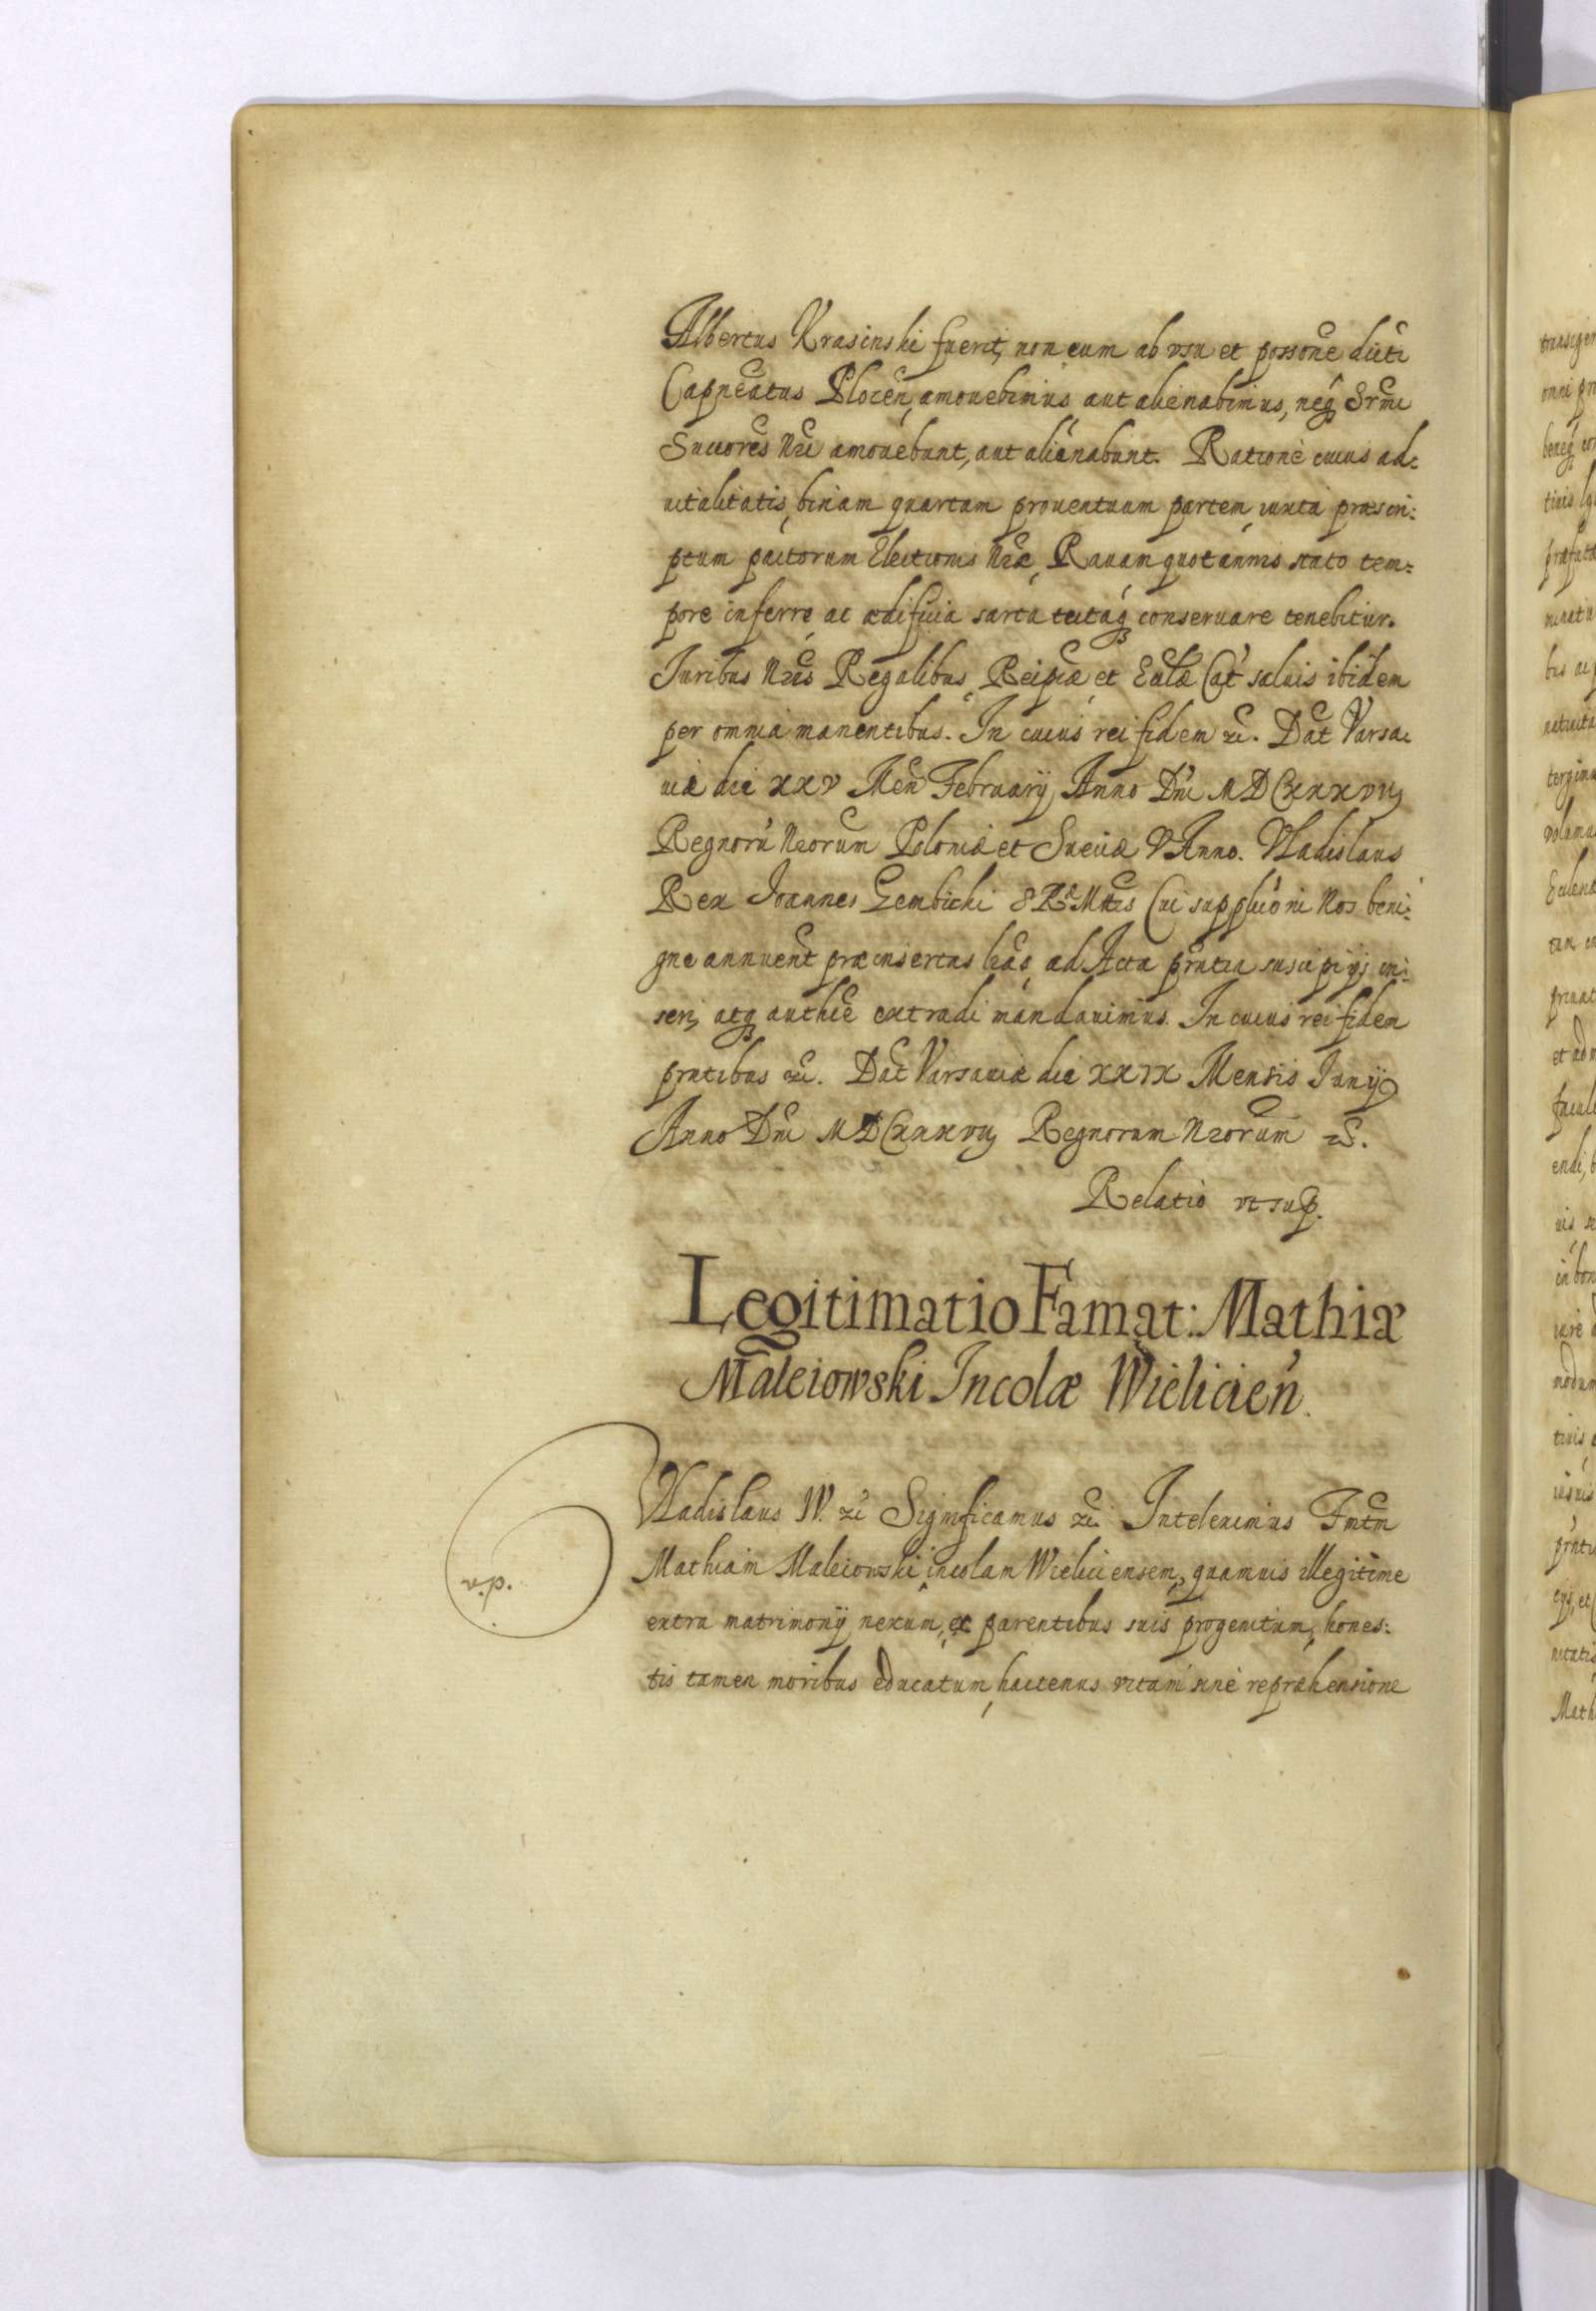 Albertus Krasinski fuerit, non eum ab vsu et possone dicti
Capneatus Plocen, amouebimus aut alienabimus, neq Srmi
Succores Nri amouebunt, aut alienabunt. Ratione cuius ad:
uitalitatis, binam quartam prouentuum partem, iuxta præscri:
ptum pactorum Electionis Nræ, Rauam quotannis stato tem:
pore inferre, ac ædificia sarta tectaq conseruare tenebitur.
Iuribus Nris Regalibus, Reipcæ, et Ecclæ Cat saluis ibidem
per omnia manentibus. In cuius rei fidem etc. Dat Varsa:
uiæ die XXV Men February Anno Dni MDCXXXVII
Regnorū Nrorum Poloniæ et Sueciæ V Anno. Vladislaus
Rex Ioannes Gembicki S R Mttis Cui supplicōni Nos beni:
gne annuent præinsertas lras, ad Acta prntia suscipi, in:
seri, atq authce extradi mandauimus. In cuius rei fidem
prntibus etc. Dat Varsauiæ die XXIX Mensis Iunij
Anno Dni MDCXXXVII Regnorum Nrorum etc.
Relatio vt sup.
Legitimatio Famat: Mathiæ
Maleiowski Incolæ Wielicien.
Vladislaus IV. etc Significamus etc Intelleximus Fmtm
Mathiam Maleiowski, incolam Wieliciensem, quamuis illegitime
extra matrimonij nexum, ex parentibus suis progenitum, hones:
tis tamen moribus educatum, hactenus vitam sine repræhensione
v.p.